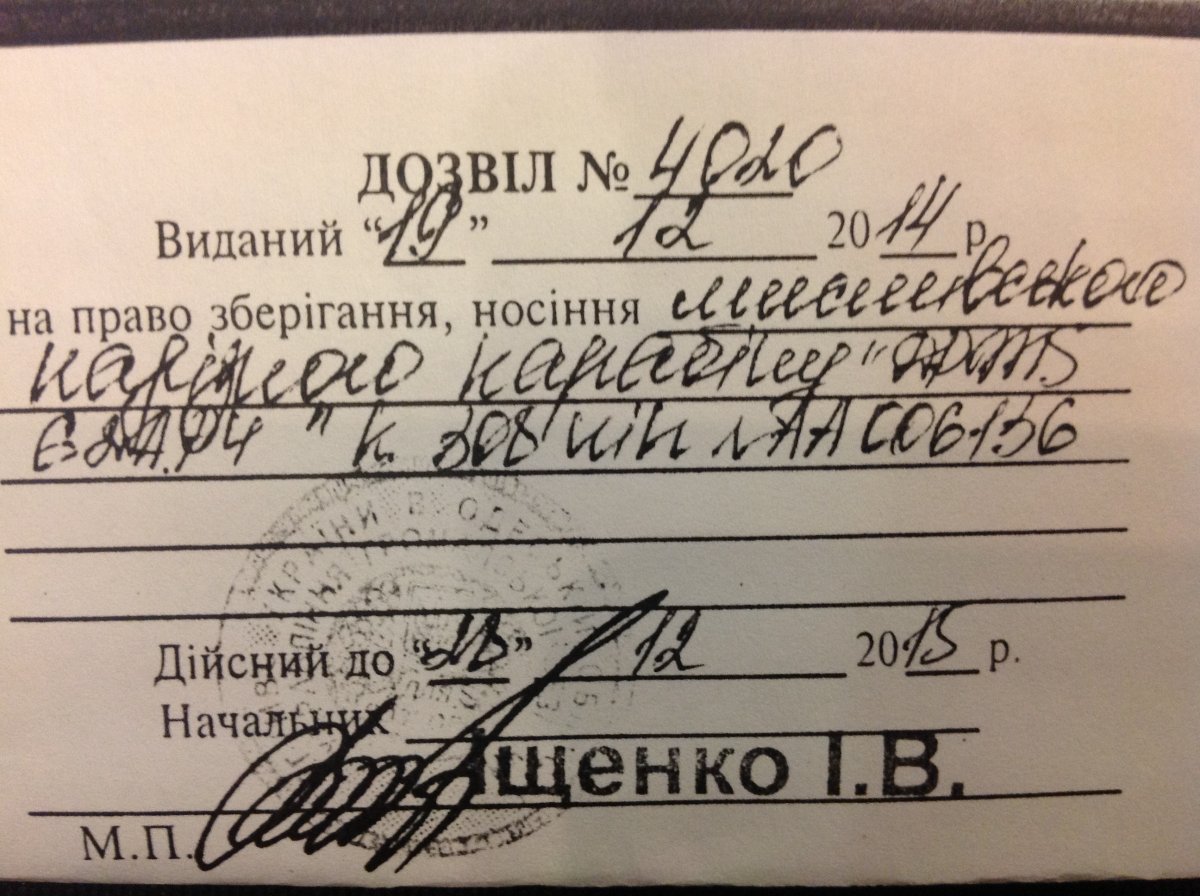 ДОЗВІЛ № 4020
Виданий “19” 12 2014 р.
на право зберігання, носіння мисливського
нарізного карабіну
к. 308 WIN № АА С06136
УКРАЇНИ В ОДЕСЬКІЙ
Дійсний до “28” 12 2015 р.
Начальник
Іщенко І.В.
М.П.